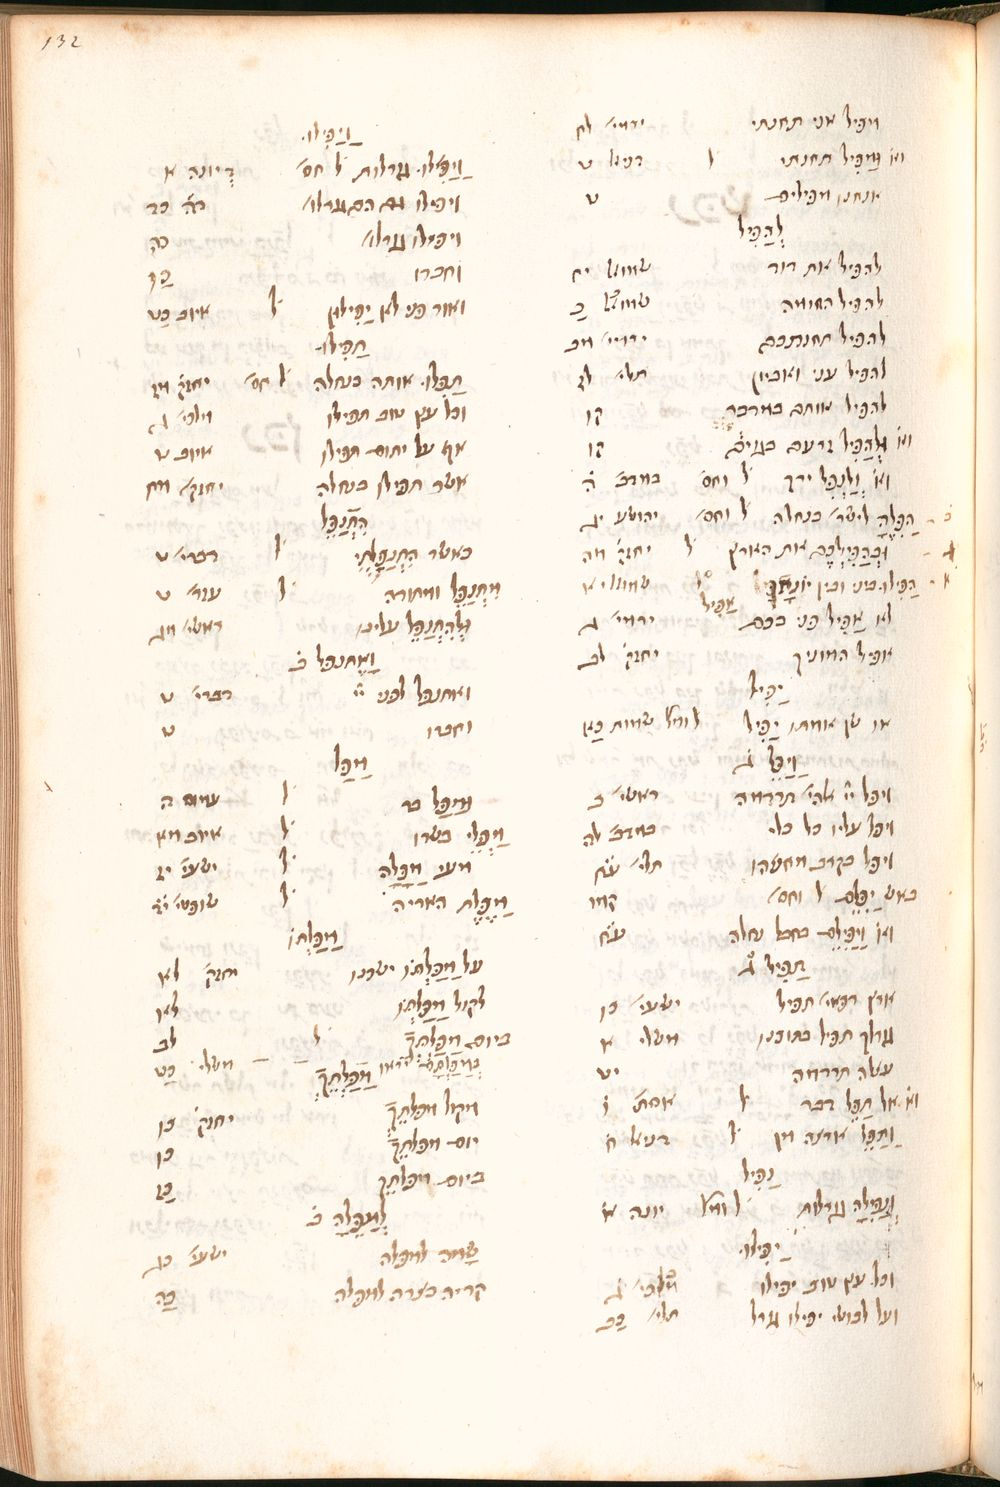 132
מפיל אני תחנתי ירמי׳ לח
וא֗ וּמַפִּיל תחנתי ל֗ דניא׳ ט
אנחנו מפילים ט
לְהַפִּיל
להפיל את דוד שמוא׳ יח
להפיל החומה שמו׳ כ
להפיל תחנתכם ירמי׳ מב
להפיל עני ואביון תלי׳ לז
להפיל אותם במדבר קו
וא֗ וּלְהַפִּיל זרעם בגוים קו
וא֗ וְלַנְפִּל ירך ל֗ וחס׳ במדב׳ ה
הַפִּלֶהָ לישר׳ בנחלה ל֗ וחס׳ יהושע יג
וּבְהַפִּילְכֶם את הארץ ל֗ יחזק׳ מה
הַפִּילוּ ביני ובין יונתן שמוא׳ יא
אַפִּיל
לא אַפִּיל פני בכם ירמי׳ ג
אפיל המוניך יחזק׳ לב
יַפִּיל
או שן אמתו יַפִּיל ל֗ ומל׳ שמות כא
וַיַּפֵּל ג֗
ויפל יי׳ אלהי׳ תרדמה ראשי׳ ב
ויפל עליו כל כלי במדב׳ לה
ויפל בקרב מחנהו תלי׳ עח
באש יַפִּלֵם ל֗ וחס׳ קמו
וא֗ וַיַּפִּילֵם בחבל נחלה עח
תַּפִּיל ג֗
ארץ רפאי׳ תפיל ישעי׳ כו
גורלך תפיל בתוכנו משלי א
עצלה תרדמה יט
וא֗ אל תַּפֵּל דבר ל֗ אסת׳ ו
וַתַּפֵּל ארצה מן ל֗ דניאל ח
נַפִּיל
וְנַפִּילָה גורלות ל֗ ומל׳ יונה א
יַפִּילוּ
וכל עץ טוב יפילו מלכי׳ ג
ועל לבושי יפילו גורל תלי׳ כב
וַיַּפִּילוּ
וַיַּפִּלוּ גורלות ל֗ חס׳ דיונה א
ויפילו גם הם גורלו׳ ד״ה כד
ויפילו גורלו׳ כה
וחברו כו
ואור פני לא יַפִּילוּן ל֗ איוב כט
תַּפִּילוּ
תַּפִּלוּ אותה בנחלה ל֗ חס׳ יחזק׳ מז
וכל עץ טוב תפילו מלכי׳ ג
אף על יתום תפילו איוב ו
אשר תפילו בנחלה יחזק׳ מח
הִתְנַפֵּל
כאשר הִתְנַפָּלְתִּי ל֗ דברי׳ ט
מִתְנַפֵּל ומתודה ל֗ עזר׳ י
וּלְהִתְנַפֵּל עלינו ראשי׳ מג
וָאֶתְנַפַּל ב֗
ואתנפל לפני יי׳ דברי׳ ט
וחברו ט
מַפַּל
וּמַפַּל בר ל֗ עמוס ח
מַפְּלֵי בשרו ל֗ איוב מא
מעי מַפָּלָה ל֗ ישעי׳ יז
מַפֶּלֶת האריה ל֗ שופטי׳ יד
מַפַּלְתּוֹ
על מַפַּלְתּוֹ ישכנו יחזק׳ לא
לקול מַפַּלְתּוֹ לא
ביום מַפַּלְתֶּךָ ל֗ לב
בְּמַפַּלְתָּם יראו משלי כט
מַפַּלְתֵּךְ
מקול מפלתֵּךְ יחזק׳ כו
יום מפלתֵּךְ כו
ביום מפלתֵּךְ כז
לְמַפֵּלָה ב֗
שָׂמָה למפלה ישעי׳ כג
קריה בצורה למפלה כה